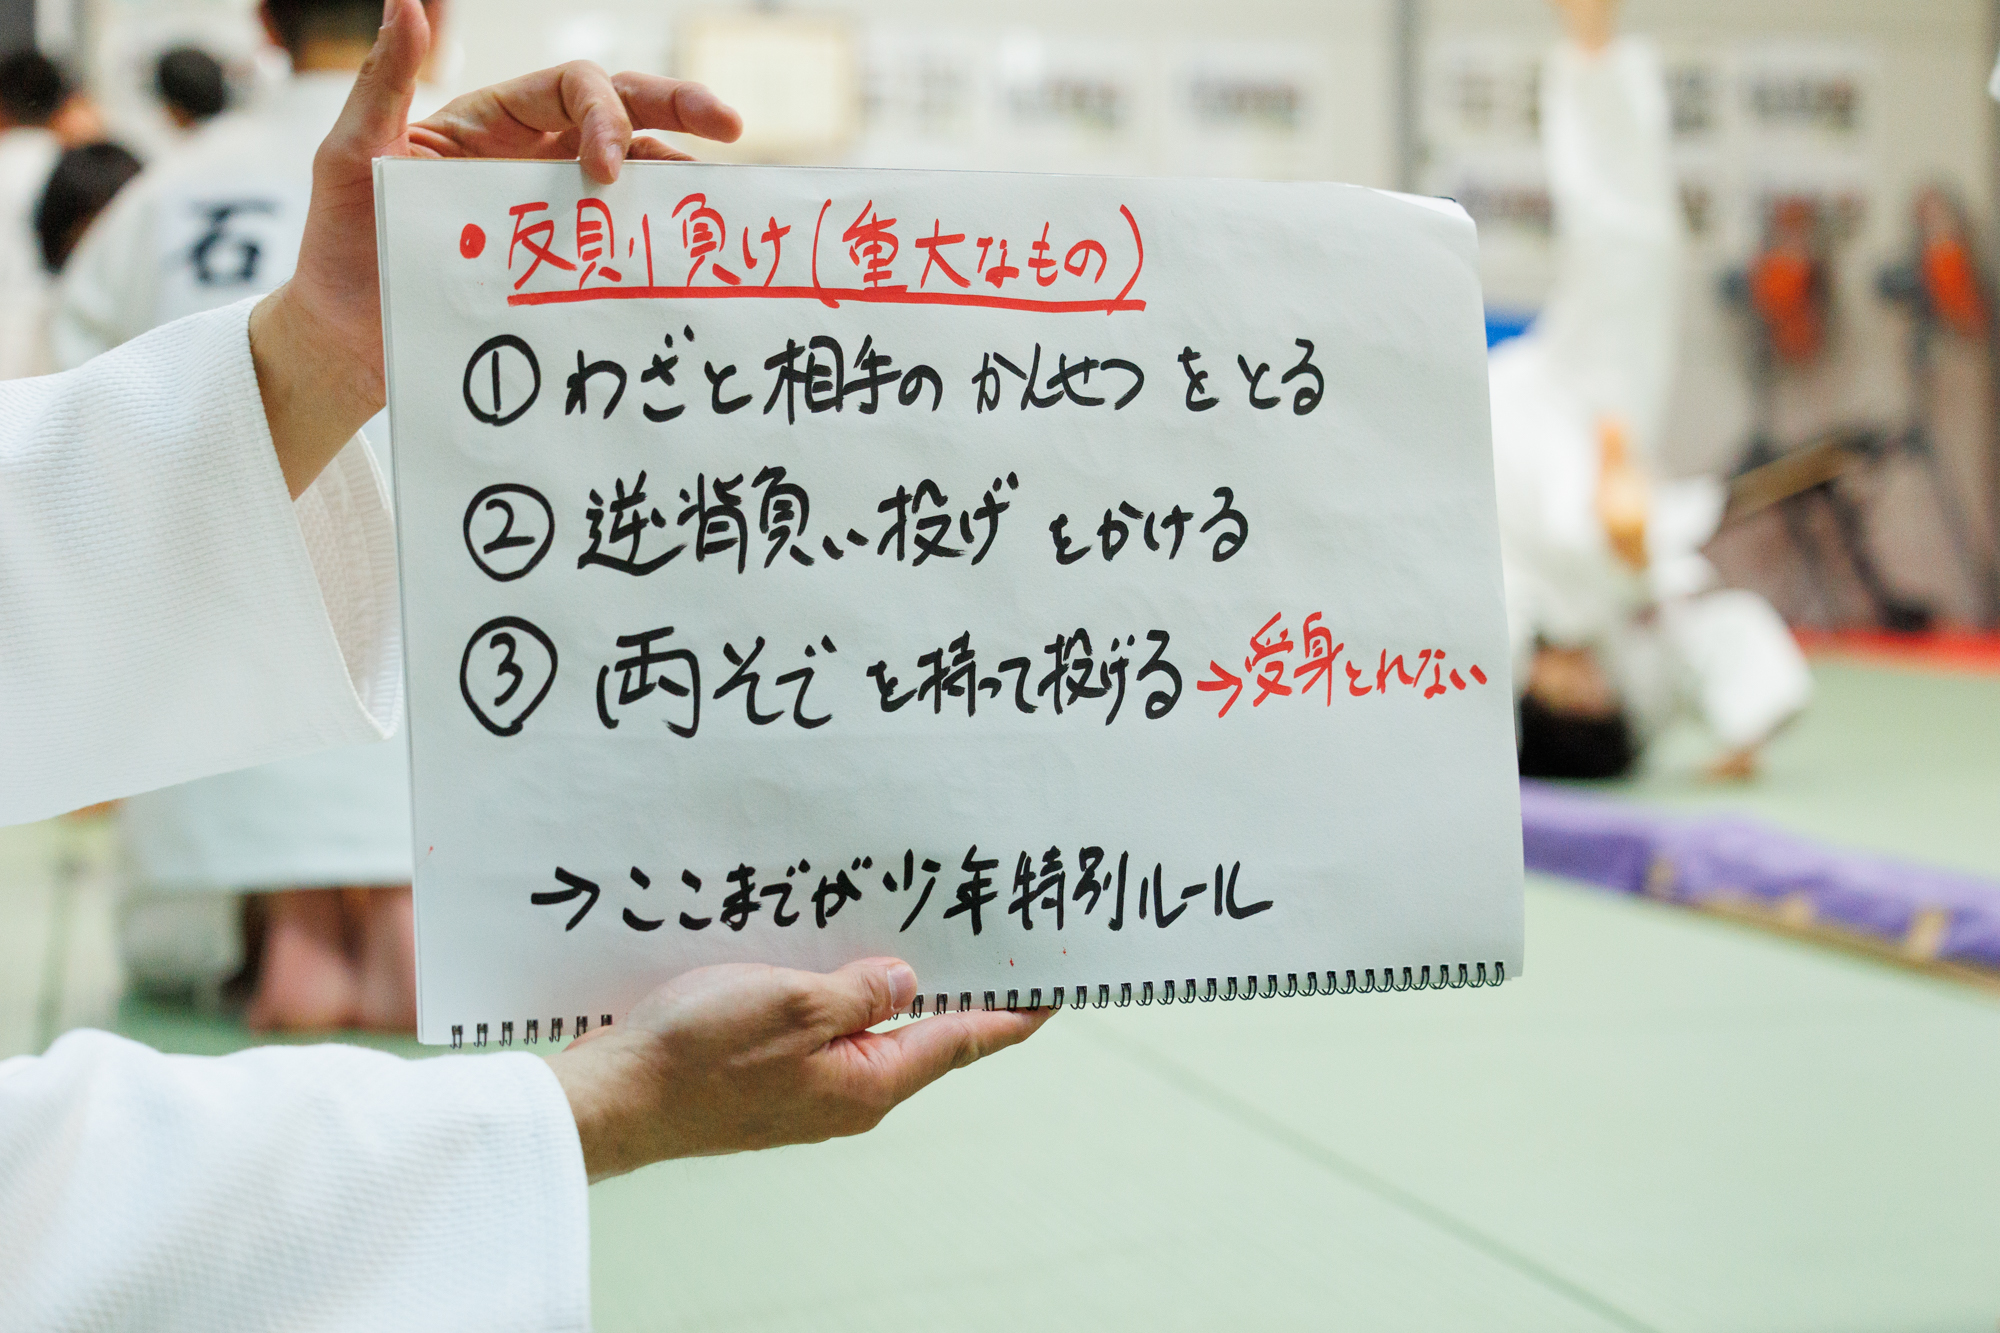 石
• 反則負け(重大なもの)
① わざと相手のかんせつをとる
② 逆背負い投げをかける
③ 両そでを持って投げる→受身とれない
→ここまでが少年特別ルール